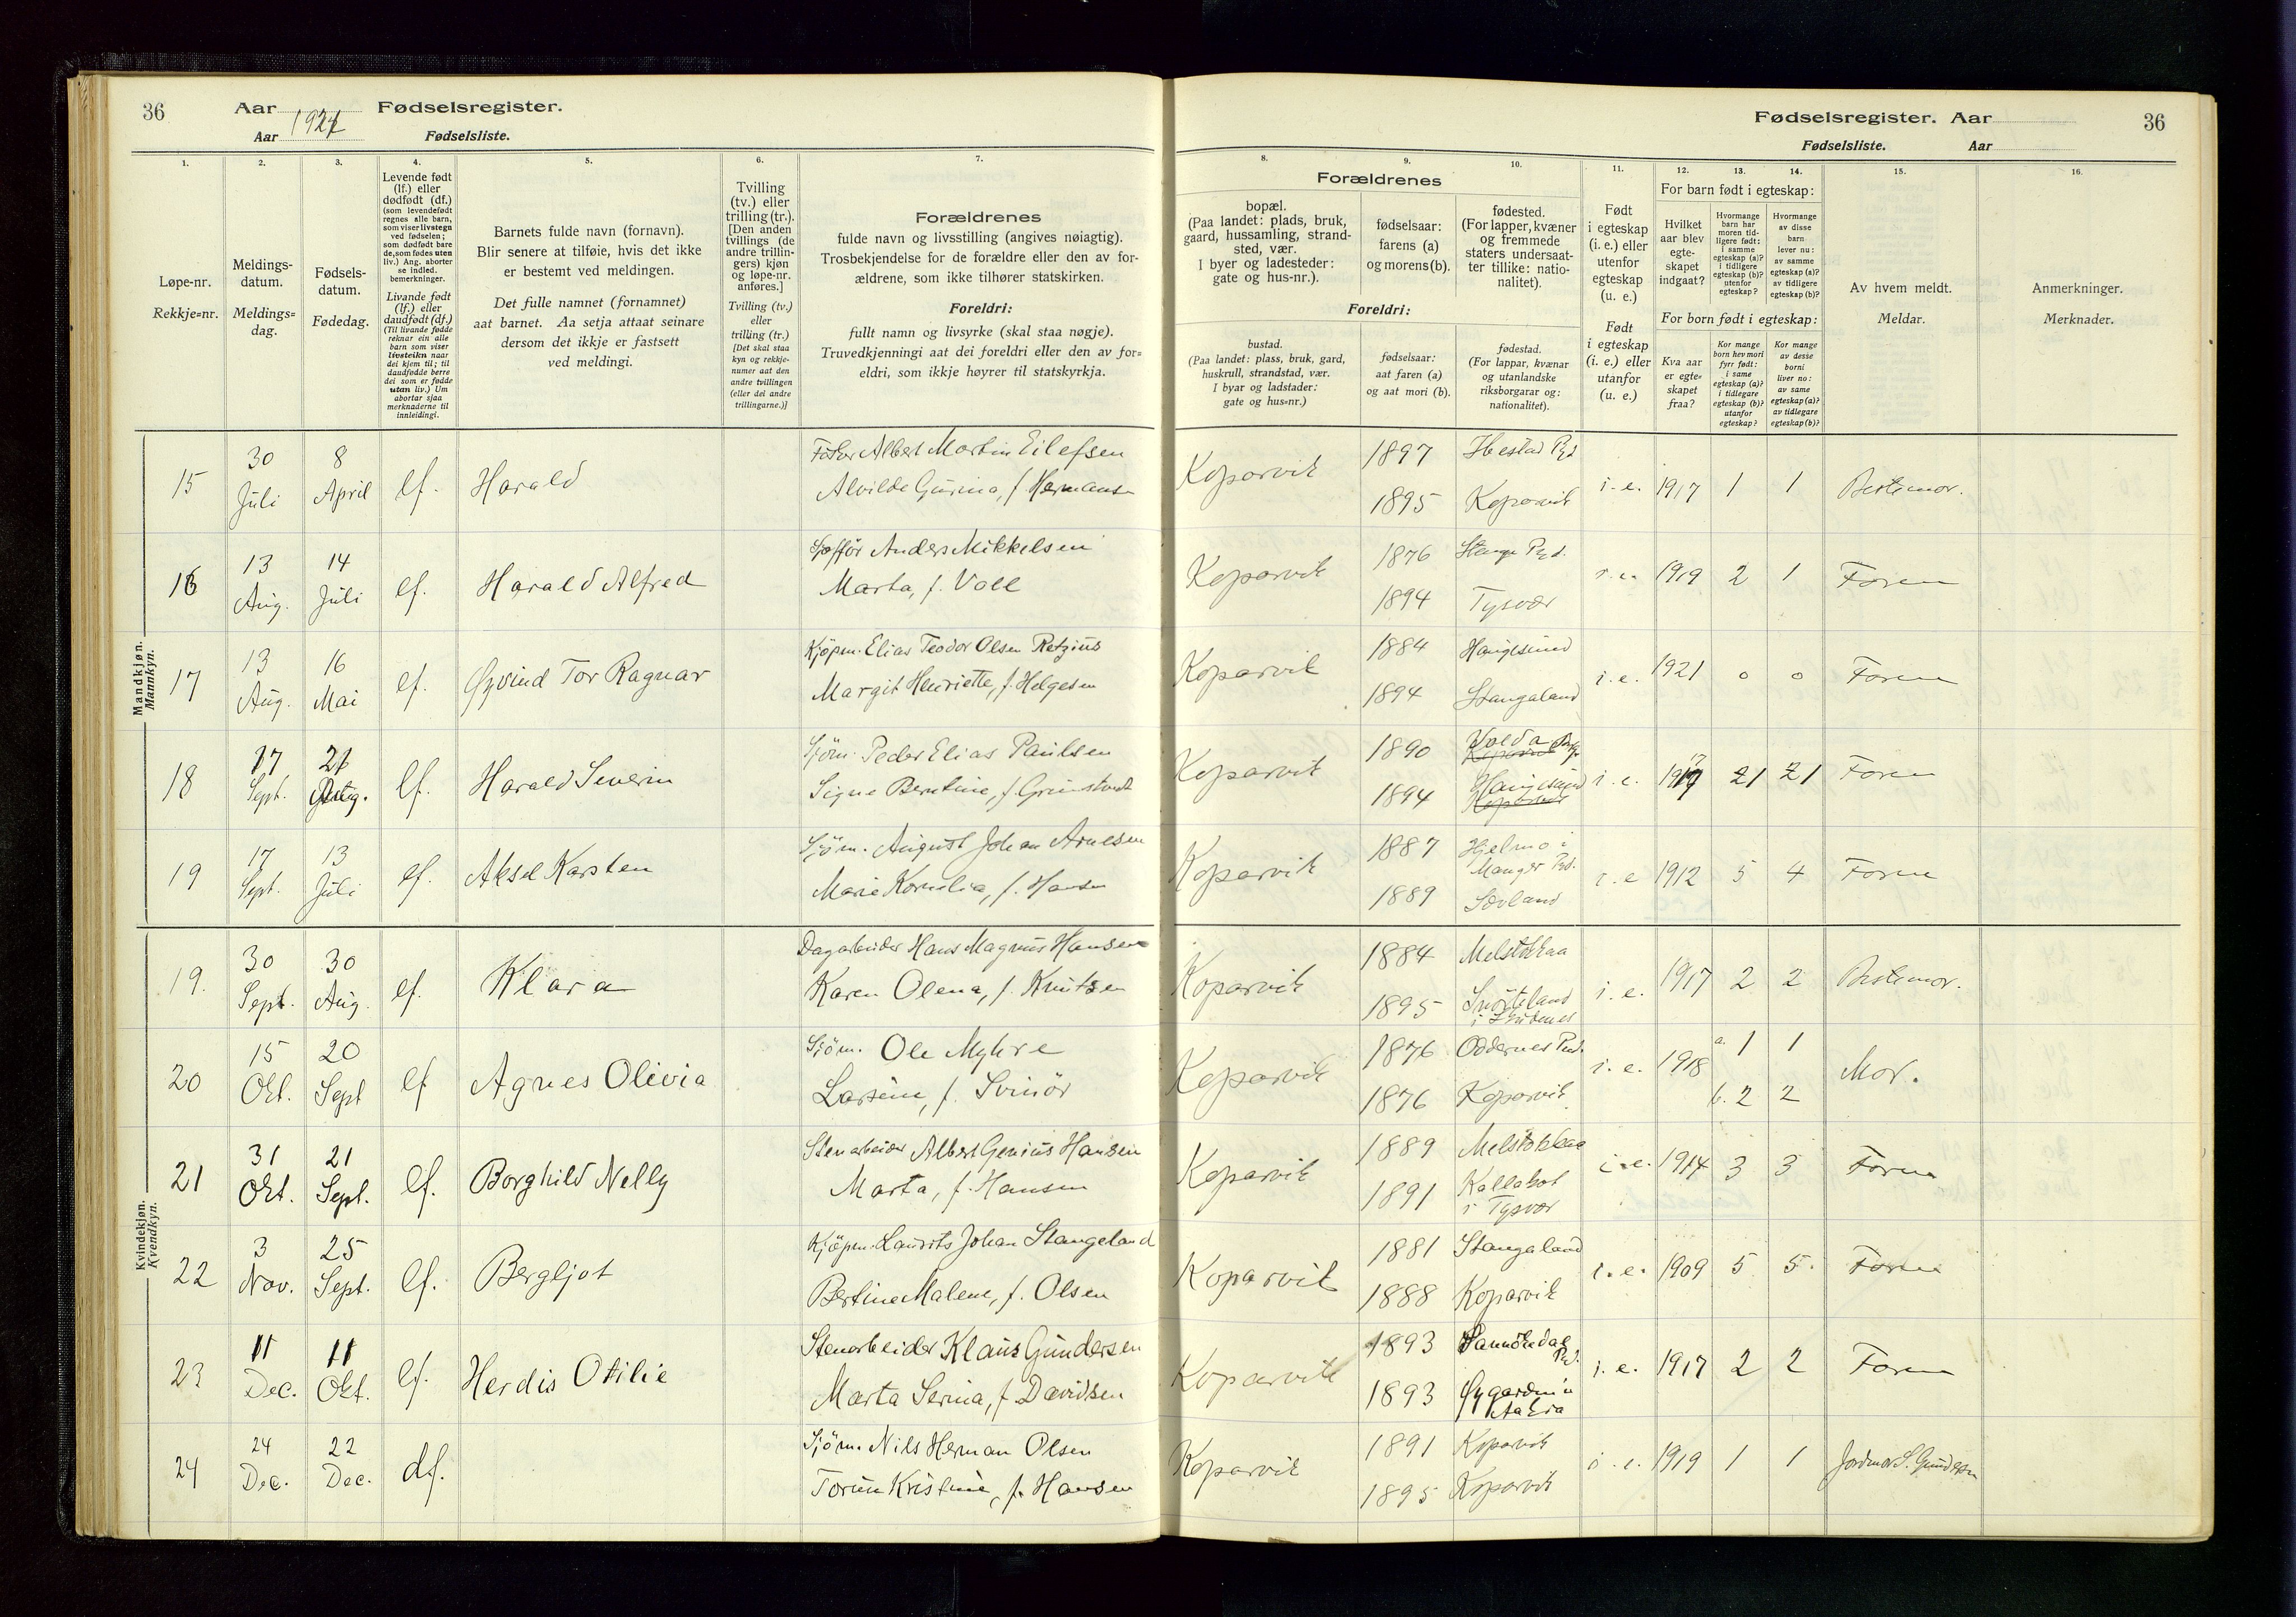 36 Aar 1921 Fødselsregister.
Aar Fødselsliste.
Fødselsregister. Aar 36
Fødselsliste. Aar
1. 2. 3. 4. 5. 6. 7. 8. 9. 10. 11. 12. 13. 14. 15. 16.
Løpe-nr.
Rekkje=nr.
Meldings-
datum.
Meldings=
dag.
Fødsels-
datum.
Fødedag.
Levende født
(lf.) eller
dødfødt (df.)
(som levendefødt
regnes alle barn,
som viser livstegn
ved fødselen;
som dødfødt bare
de, som fødes uten
liv.) Ang. aborter
se indled.
bemerkninger.
Livande født
(lf.) eller
daudfødt (df.)
(Til livande fødde
reknar ein alle
barn som viser
livsteikn naar
dei kjem til; til
daudfødde berre
dei som er fødde
utan liv.) Um
abortar sjaa
merknaderne til
innleidingi.
Barnets fulde navn (fornavn).
Blir senere at tilføie, hvis det ikke
er bestemt ved meldingen.
Det fulle namnet (fornamnet)
aat barnet. Aa setja attaat seinare
dersom det ikkje er fastsett
ved meldingi.
Tvilling
(tv.) eller
trilling (tr.).
[Den anden
tvillings (de
andre trillin-
gers) kjøn
og løpe-nr.
anføres.]
Tvilling (tv.)
eller
trilling (tr.)
[Det skal staa
kyn og rekkje-
numer aat den
andre tvillingen
(eller dei andre
trillingarne.)]
Forældrenes
fulde navn og livsstilling (angives nøiagtig).
Trosbekjendelse for de forældre eller den av for-
ældrene, som ikke tilhører statskirken.
Foreldri:
fullt namn og livsyrke (skal staa nøgje).
Truvedkjenningi aat dei foreldri eller den av for=
eldri, som ikkje høyrer til statskyrkja.
Forældrenes
bopæl.
(Paa landet: plads, bruk,
gaard, hussamling, strand-
sted, vær.
I byer og ladesteder:
gate og hus-nr.).
fødselsaar:
farens (a)
og morens (b).
fødested.
(For lapper, kvæner
og fremmede
staters undersaat-
ter tillike: natio-
nalitet).
Foreldri:
bustad.
(Paa landet: plass, bruk, gard,
huskrull, strandstad, vær.
I byar og ladstader:
gate og hus=nr.)
fødselsaar:
aat faren (a)
og aat mori (b).
fødestad.
(For lappar, kvænar
og utanlandske
riksborgarar og:
nationalitet).
Født
i egteskap
(i. e.) eller
utenfor
egteskap
(u. e.)
Født
i egteskap
(i. e.) eller
utanfor
(u. e.)
For barn født i egteskap:
Hvilket
aar blev
egte-
skapet
indgaat?
Hvormange
barn har
moren tid-
ligere født:
i samme
egteskap (a)?
i tidligere
egteskap (b)?
utenfor
egteskap?
Hvormange
av disse
barn
lever nu:
av samme
egteskap (a)?
av tidligere
egteskap (b)?
For born født i egteskap:
Kva aar
er egte-
skapet
fraa?
Kor mange
born hev mori
fyrr født:
i same
egteskap (a)?
i tidlegare
egteskap (b)?
utanfor
egteskap?
Kor mange
av desse
borni
liver no:
av same
egteskap (a)?
av tidlegare
egteskap (b)?
Av hvem meldt.
Meldar.
Anmerkninger.
Merknader.
Mandkjøn.
Mannkyn.
15 30 Juli 8 April lf. Harald
Albert Martin Eilefsen
Alvilde Gurina, f. Hermansen
Koparvik 1897 1895 Koparvik i. e. 1917 1 1 Bestemor.
16 13 Aug. 14 Juli lf. Harald Alfred
Anders Mikkelsen
Marta, f. Voll
Koparvik 1876 Stange Pgd. 1894 Tysvær i. e. 1919 2 1 Faren
17 13 Aug. 16 Mai lf. Øyvind Tor Ragnar
Kjøpm. Elias Teodor Olsen Retzius
Margit Henriette, f. Helgesen
Koparvik 1884 Haugesund 1894 Stangaland i. e. 1921 0 0 Faren
18 17 Sept. 21 Aug. lf. Harald Severin
Sjöm. Peder Elias Paulsen
Signe Berntine, f. Grimstvedt
Koparvik 1890 1894 Haugesund i. e. 1917 1 1 Faren
19 17 Sept. 13 Juli lf. Aksel Karsten
Sjöm. August Johan Arnesen
Marie Kornelia, f. Hansen
Koparvik 1887 Hjelmo i Manger Pgd. 1889 Sævland i. e 1912 5 4 Faren
Kvindekjøn.
Kvendkyn.
19. 30 Sept. 30 Aug. lf. Klara
Dagarbeider Hans Magnus Hansen
Karen Olena, f. Knutsen
Koparvik 1884 Melstokkaa 1895 i. e. 1917 2 2 Bestemor.
20 15 Okt. 20 Sept lf Agnes Olivia
Sjöm. Ole Myhre
Larsine, f. Svinör
Koparvik 1876 Oddernes Pgd. 1876 Koparvik i. e. 1918 a. 1 1 b. 2 2 Mor.
21 31 Okt. 21 Sept. lf. Borghild Nelly
Stenarbeider Albert Genius Hansen
Marta, f. Hansen
Koparvik 1889 Melstokkaa 1891 Kallabot i Tysvær i. e. 1914 3 3 Faren
22 3 Nov. 25 Sept. lf. Bergljot
Kjøpm. Laurits Johan Stangeland
Bertine Malene, f. Olsen
Koparvik 1881 Stangaland 1888 Koparvik i. e. 1909 5 5. Faren
23 11 Dec. 11 Okt. lf. Herdis Otilie
Stenarbeider Klaus Gundersen
Marta Serina, f. Davidsen
Koparvik 1893 Sannökedal Pgd. 1893 Øygarden i. e. 1917 2 2 Faren
24 24 Dec. 22 Dec. df.
Sjöm. Nils Herman Olsen
Torun Kristine, f. Hansen
Koparvik 1891 Koparvik 1895 Koparvik i. e. 1919 1 1 Jordmor S. Gundersen